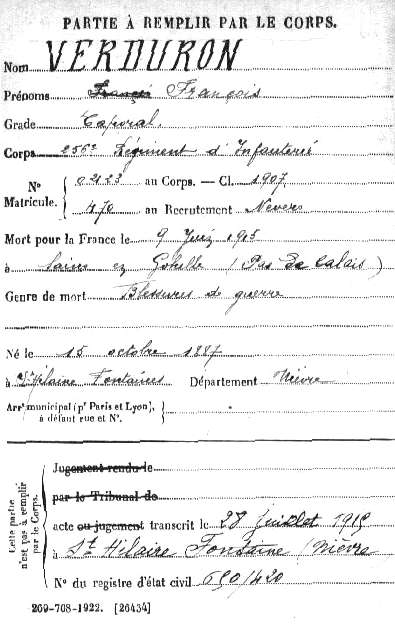 PARTIE À REMPLIR PAR LE CORPS.
Nom VERDURON
Prénoms Françis François
Grade Caporal.
Corps 256e Régiment d'Infanterie
N° Matricule. { 02123 au Corps. — Cl. 1907
470 au Recrutement Nevers
Mort pour la France le 9 Juin 1915
à Sains en Gohelle (Pas de Calais)
Genre de mort Blessures de guerre
Né le 15 octobre 1887
à St Hilaire Fontaines Département Nièvre
Arrt municipal (pr Paris et Lyon), à défaut rue et N°.
Cette partie n'est pas à remplir par le Corps.
Jugement rendu le
par le Tribunal de
acte ou jugement transcrit le 28 juillet 1915
à St Hilaire Fontaine (Nièvre
N° du registre d'état civil 690/420
269-708-1922. [26434]